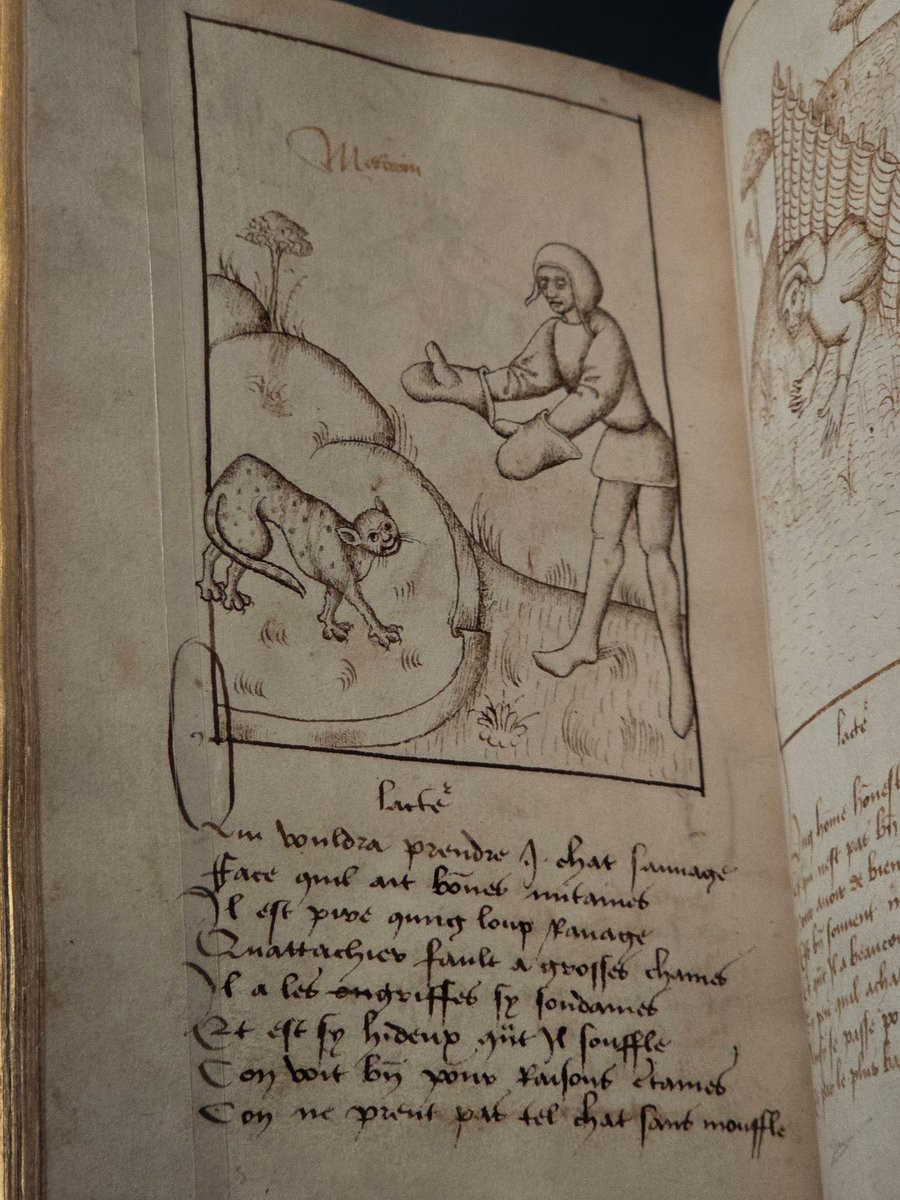 lacteꝰ
Qui vouldra prendre .J. chat sauuage
Face quil ait bōnes mitaines
Il est pire qung loup Rauage
Quattachier fault a grosses chaines
Il a les engriffes sy soudaines
Et est sy hideux qūt Jl souffle
Con voit bn̄ pour Raisons c̄taines
Con ne prent pas tel chat sans mouffle
lacteꝰ
Ung hōme hōnest
bn̄
de bien
souuent
Jl a beaucou
quil acha
se passe po
le plus ba